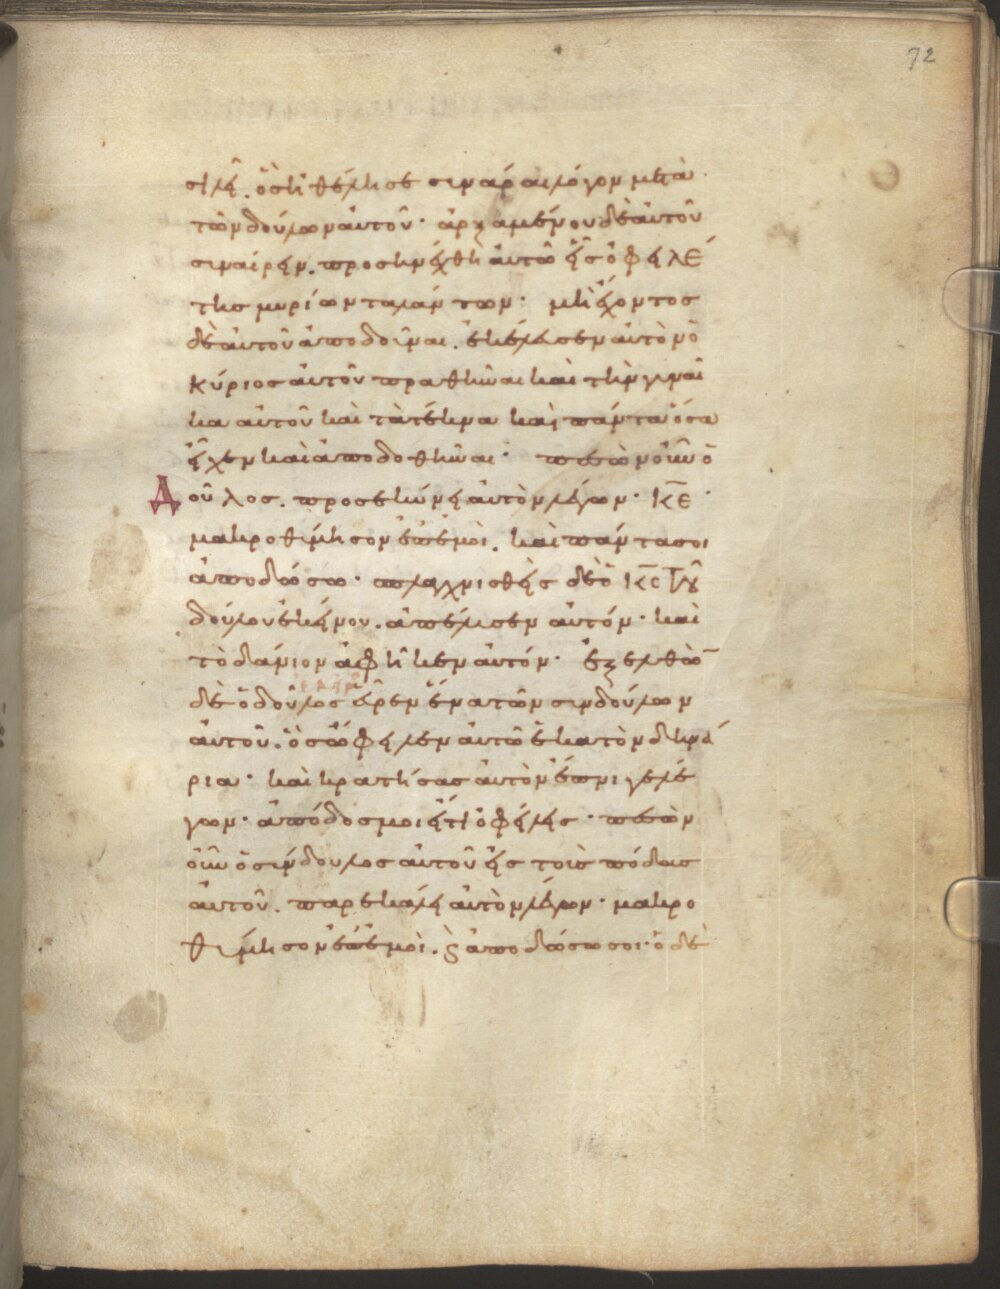 72
σιλεῖ. ὅστϊ θέλησε συναρ́αι λόγον μετὰ.
τῶν δούλων αὐτοῦ· ἀρξαμένου δὲ αὐτοῦ
σιναίρειν. προσηνέχθη αὐτῶ εἷς ὀφειλέ
της μυρίων ταλάντων· μὴ ἔχοντος
δὲ αὐτοῦ ἀποδοῦναι. ἐκέλευσεν αὐτὸν ὁ
κύριος αὐτοῦ πραθῆναι καὶ τὴν γυναῖ
κα αὐτοῦ καὶ τὰ τέκνα καὶ πάντα ὅσα
εἶχεν καὶ ἀποδοθῆναι· πεσὼν οὖν ὁ
δοῦλος. προσεκύνει αὐτὸν λέγων· κ̅ε̅·
μακροθύμησον ἐπ' ἐμοὶ. καὶ πάντα σοι
ἀποδώσω· σπλαχνισθεὶς δὲ ὁ κ̅ς̅ τοῦ
δούλου ἐκείνου. ἀπέλυσεν αὐτόν· καὶ
τὸ δάνιον ἀφῆκεν αὐτόν· ἐξελθὼν
δὲ ὁ δοῦλος εὗρεν ἕνα τῶν συνδούλων
αὐτοῦ. ὃς ὤφειλεν αὐτῶ ἑκατὸν δηνά
ρια· καὶ κρατήσας αὐτὸν ἔπνιγε λέ
γων· ἀπόδος μοι εἴ τι ὀφείλεις· πεσὼν
οὖν ὁ σύνδουλος αὐτοῦ εἰς τοὺς πόδας
αὐτοῦ. παρεκάλει αὐτὸν λέγων· μακρο
θύμησον ἐπ' ἐμοὶ. ϗ ἀποδώσω σοι· ὁ δὲ